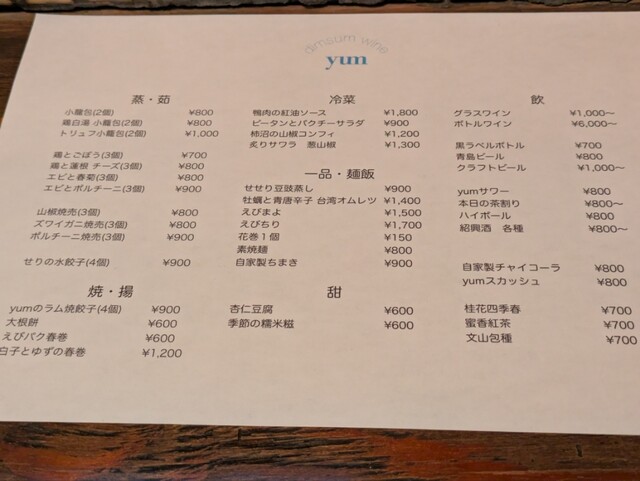 dimsum wine
yum
蒸・茹
小籠包(2個) ¥800
鶏白湯 小籠包(2個) ¥800
トリュフ小籠包(2個) ¥1,000
鶏とごぼう(3個) ¥700
鶏と蓮根 チーズ(3個) ¥800
エビと春菊(3個) ¥800
エビとポルチーニ(3個) ¥900
山椒焼売(3個) ¥800
ズワイガニ焼売(3個) ¥800
ポルチーニ焼売(3個) ¥900
せりの水餃子(4個) ¥900
焼・揚
yumのラム焼餃子(4個) ¥900
大根餅 ¥600
えびパク春巻 ¥600
白子とゆずの春巻 ¥1,200
冷菜
鴨肉の紅油ソース ¥1,800
ピータンとパクチーサラダ ¥900
柿沼の山椒コンフィ ¥1,200
炙りサワラ 葱山椒 ¥1,300
一品・麺飯
せせり豆豉蒸し ¥900
牡蠣と青唐辛子 台湾オムレツ ¥1,400
えびまよ ¥1,500
えびちり ¥1,700
花巻1個 ¥150
素焼麺 ¥800
自家製ちまき ¥900
甜
杏仁豆腐 ¥600
季節の糯米糍 ¥600
飲
グラスワイン ¥1,000〜
ボトルワイン ¥6,000〜
黒ラベルボトル ¥700
青島ビール ¥800
クラフトビール ¥1,000〜
yumサワー ¥800
本日の茶割り ¥800〜
ハイボール ¥800
紹興酒 各種 ¥800〜
自家製チャイコーラ ¥800
yumスカッシュ ¥800
桂花四季春 ¥700
蜜香紅茶 ¥700
文山包種 ¥700